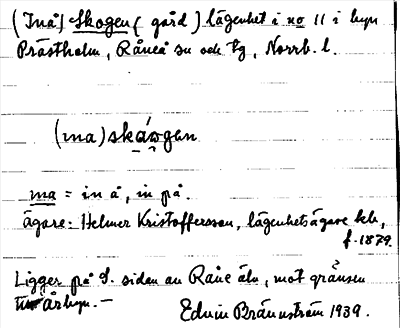 (Inå) Skogen (gård) lägenhet i no 11 i byn
Prästholm, Råneå sn och tg, Norrb. l.
(ma) skǻogen
ma = in å, in på.
ägare: Helmer Kristoffersson, lägenhetsägare
f. 1879.
Ligger på S. sidan av Råne älv, mot gränsen
till årbyn.—
Edvin Brännström 1939.